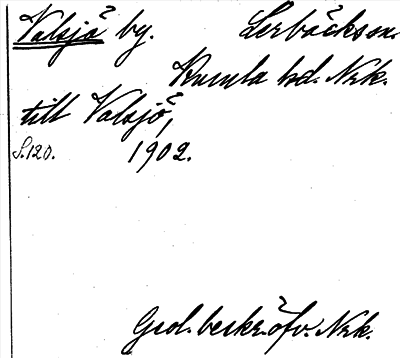 Valsjö by. Lerbäcks sn.
Kumla hd. Nrk.
till Valsjö,
S.120. 1902.
Geol. beskr. öfv. Nrk.